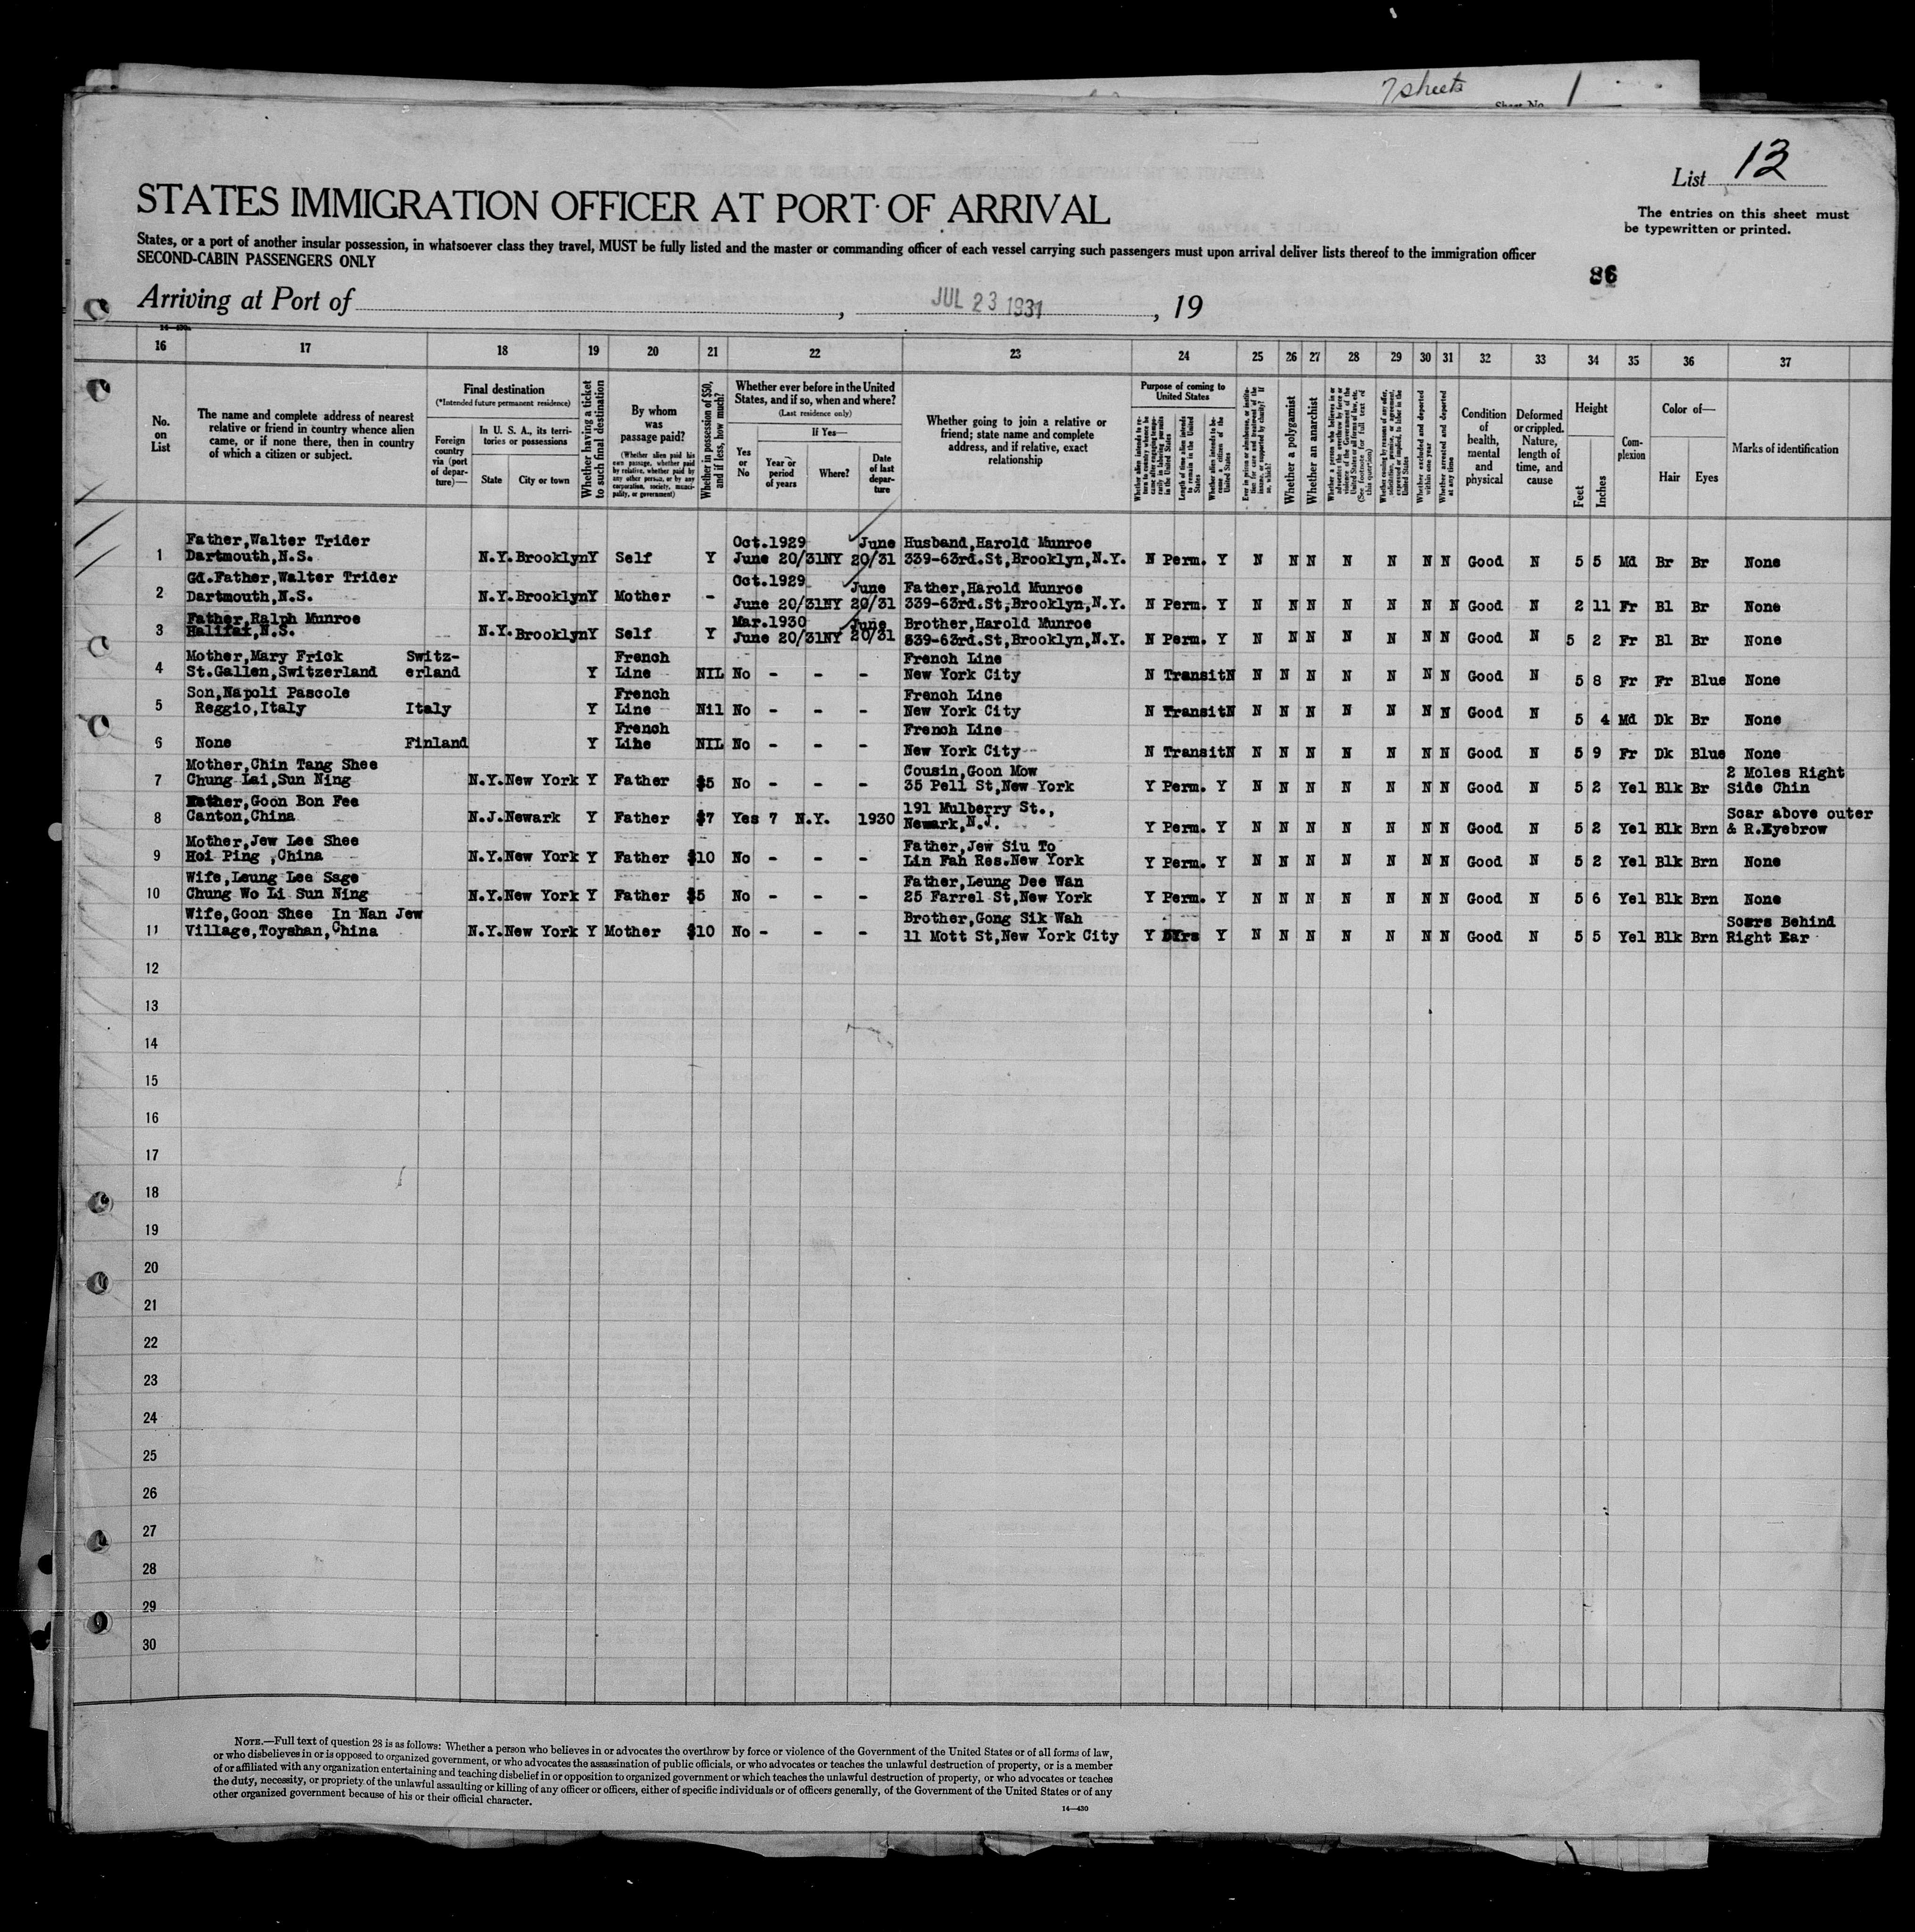 7 sheets
Sheet No. 1
List 13
STATES IMMIGRATION OFFICER AT PORT OF ARRIVAL
The entries on this sheet must
be typewritten or printed.
States, or a port of another insular possession, in whatsoever class they travel, MUST be fully listed and the master or commanding officer of each vessel carrying such passengers must upon arrival deliver lists thereof to the immigration officer
SECOND-CABIN PASSENGERS ONLY
86
Arriving at Port of , JUL 23 1931 , 19
16 17 18 19 20 21 22 23 24 25 26 27 28 29 30 31 32 33 34 35 36 37
No.
on
List
The name and complete address of nearest
relative or friend in country whence alien
came, or if none there, then in country
of which a citizen or subject.
Final destination
(*Intended future permanent residence)
Foreign
country
via (port
of depar-
ture)—
In U. S. A., its terri-
tories or possessions
State City or town
Whether having a ticket
to such final destination
By whom
was
passage paid?
(Whether alien paid his
own passage, whether paid
by relative, whether paid by
any other person, or by any
corporation, society, munici-
pality, or government)
Whether in possession of $50,
and if less, how much?
Whether ever before in the United
States, and if so, when and where?
(Last residence only)
Yes
or
No
If Yes—
Year or
period
of years
Where?
Date
of last
depar-
ture
Whether going to join a relative or
friend; state name and complete
address, and if relative, exact
relationship
Purpose of coming to
United States
Length of time alien intends
to remain in the United
States
Whether alien intends to be-
come a citizen of the
United States
Whether a polygamist
Whether an anarchist
Whether excluded and deported
within one year
Whether arrested and deported
at any time
Condition
of
health,
mental
and
physical
Deformed
or crippled.
Nature,
length of
time, and
cause
Height
Feet
Inches
Com-
plexion
Color of—
Hair Eyes
Marks of identification
Father,Walter Trider Oct.1929 June Husband,Harold Munroe
1 Dartmouth,N.S. N.Y.Brooklyn Y Self Y June 20/31 NY 20/31 339-63rd.St,Brooklyn,N.Y. N Perm. Y N N N N N N N Good N 5 5 Md Br Br None
Gd.Father,Walter Trider Oct.1929 June Father,Harold Munroe
2 Dartmouth,N.S. N.Y.Brooklyn Y Mother - June 20/31 NY 20/31 339-63rd.St,Brooklyn,N.Y. N Perm. Y N N N N N N N Good N 2 11 Fr Bl Br None
Father,Ralph Munroe Mar.1930 June Brother,Harold Munroe
3 Halifax,N.S. N.Y.Brooklyn Y Self Y June 20/31 NY 20/31 339-63rd.St,Brooklyn,N.Y. N Perm. Y N N N N N N N Good N 5 2 Fr Bl Br None
Mother,Mary Frick Switz- French French Line
4 St.Gallen,Switzerland erland Y Line NIL No - - - New York City N Transit N N N N N N N N Good N 5 8 Fr Fr Blue None
Son,Napoli Pascole French French Line
5 Reggio,Italy Italy Y Line Nil No - - - New York City N Transit N N N N N N N N Good N 5 4 Md Dk Br None
French French Line
6 None Finland Y Line NIL No - - - New York City N Transit N N N N N N N N Good N 5 9 Fr Dk Blue None
Mother,Chin Tang Shee Cousin,Goon Mow 2 Moles Right
7 Chung Lai,Sun Ning N.Y.New York Y Father $5 No - - - 35 Pell St,New York Y Perm. Y N N N N N N N Good N 5 2 Yel Blk Br Side Chin
Father,Goon Bon Fee 191 Mulberry St., Scar above outer
8 Canton,China N.J.Newark Y Father $7 Yes 7 N.Y. 1930 Newark,N.J. Y Perm. Y N N N N N N N Good N 5 2 Yel Blk Brn & R.Eyebrow
Mother,Jew Lee Shee Father,Jew Siu To
9 Hoi Ping ,China N.Y.New York Y Father $10 No - - - Lin Fah Res.New York Y Perm. Y N N N N N N N Good N 5 2 Yel Blk Brn None
Wife,Leung Lee Sage Father,Leung Dee Wan
10 Chung Wo Li Sun Ning N.Y.New York Y Father $5 No - - - 25 Farrel St,New York Y Perm. Y N N N N N N N Good N 5 6 Yel Blk Brn None
Wife,Goon Shee In Nan Jew Brother,Gong Sik Wah Scars Behind
11 Village,Toyshan,China N.Y.New York Y Mother $10 No - - - 11 Mott St,New York City Y Y N N N N N N N Good N 5 5 Yel Blk Brn Right Ear
12
13
14
15
16
17
18
19
20
21
22
23
24
25
26
27
28
29
30
NOTE.—Full text of question 28 is as follows: Whether a person who believes in or advocates the overthrow by force or violence of the Government of the United States or of all forms of law,
or who disbelieves in or is opposed to organized government, or who advocates the assassination of public officials, or who advocates or teaches the unlawful destruction of property, or is a member
of or affiliated with any organization entertaining and teaching disbelief in or opposition to organized government or which teaches the unlawful destruction of property, or who advocates or teaches
the duty, necessity, or propriety of the unlawful assaulting or killing of any officer or officers, either of specific individuals or of officers generally, of the Government of the United States or of any
other organized government because of his or their official character.
14—430